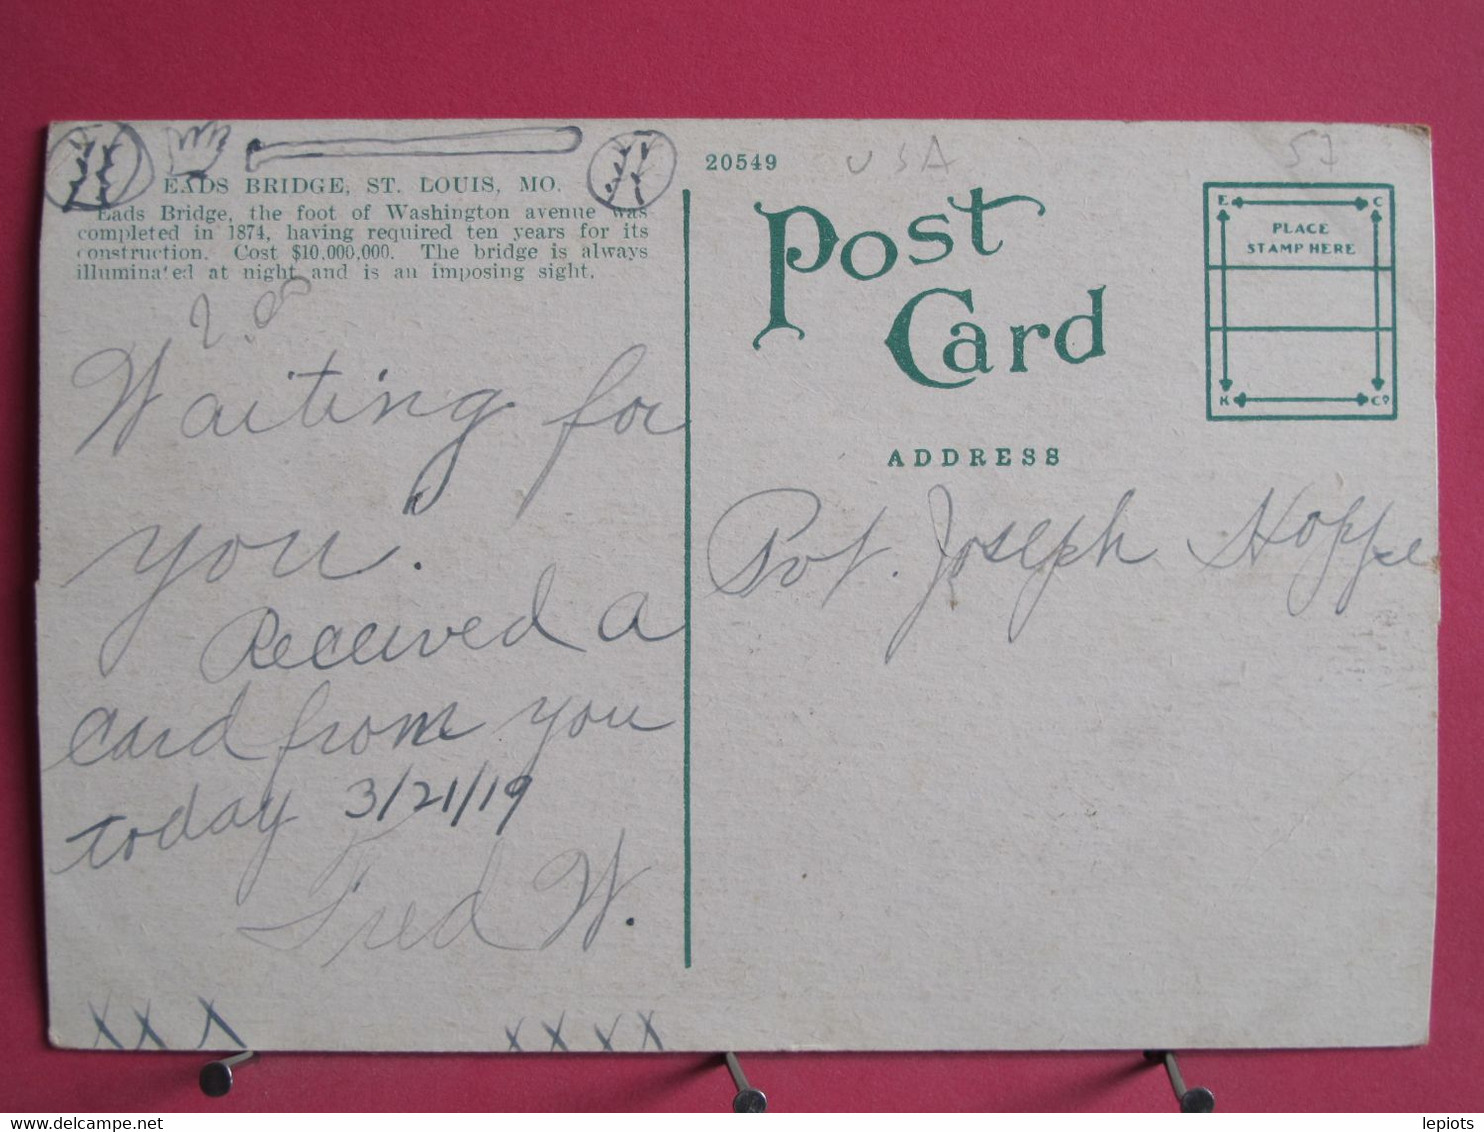 EADS BRIDGE, ST. LOUIS, MO.
Eads Bridge, the foot of Washington avenue was
completed in 1874, having required ten years for its
construction. Cost $10,000,000. The bridge is always
illuminated at night and is an imposing sight.
Waiting for
you.
Received a
card from you
today 3/21/19
Fred W.
XXX XXXX
20549
USA
57
Post
Card
E C
PLACE
STAMP HERE
K Co
ADDRESS
Pvt. Joseph Hoppe
delcampe.net
lepiots